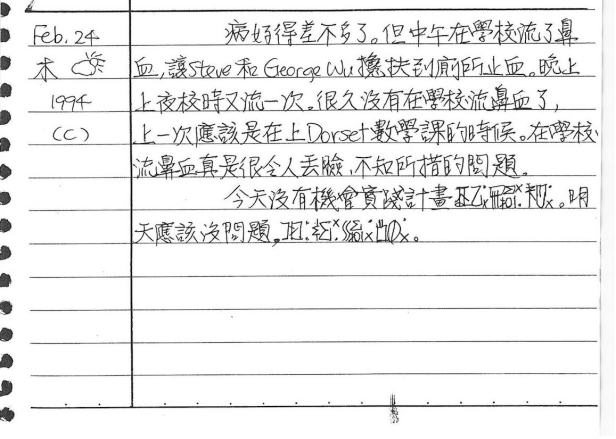 Feb. 24 病好得差不多了。但中午在學校流了鼻
木 血,讓Steve和George Wu攙扶到廁所止血。晚上
1994 上夜校時又流一次。很久沒有在學校流鼻血了,
(C) 上一次應該是在上Dorset數學課的時候。在學校
流鼻血真是很令人丟臉、不知所措的問題。
今天沒有機會實踐計畫 。明
天應該沒問題,